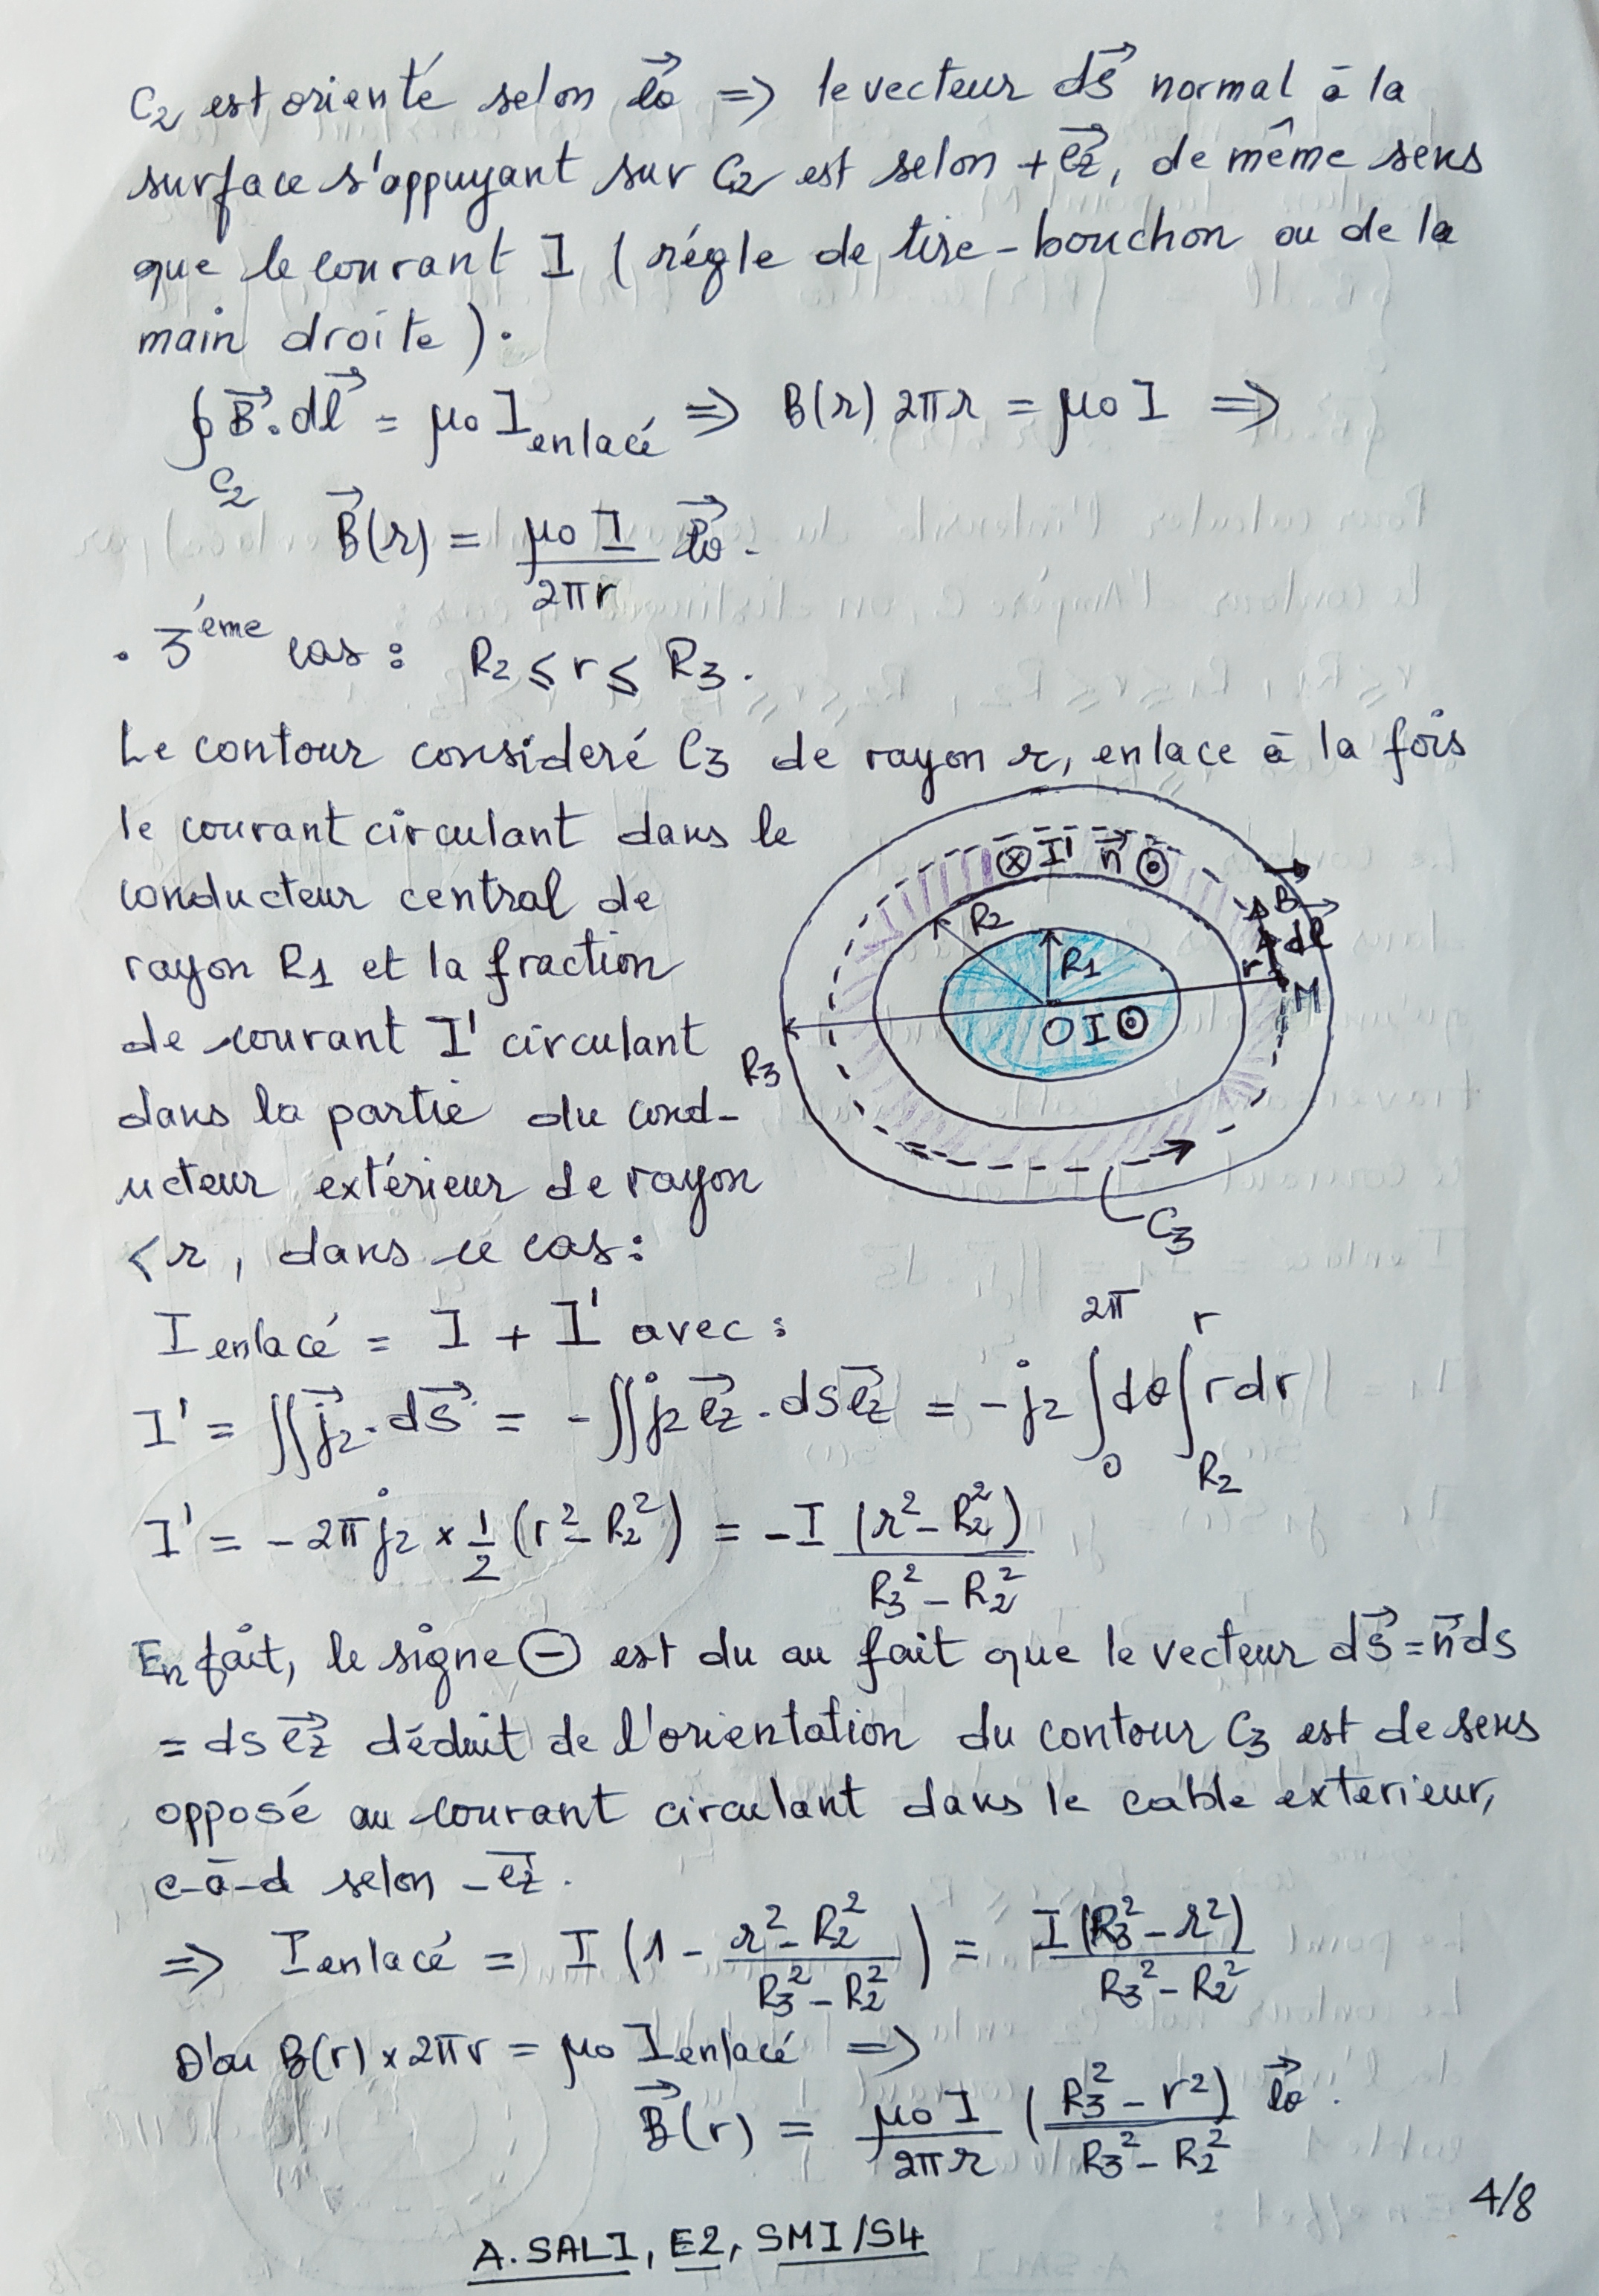 C₂ est orienté selon e⃗θ => le vecteur dS⃗ normal ā la
surface s'appuyant sur C₂ est selon + e⃗z, de même sens
que le courant I (régle de tire-bouchon ou de la
main droite).
∮_C₂ B⃗.dl⃗ = μ₀ I enlacé => B(r) 2πr = μ₀ I =>
B⃗(r) = μ₀ I / 2πr e⃗θ.
. 3éme cas : R₂ ⩽ r ⩽ R₃.
Le contour consideré C₃ de rayon r, enlace ā la fois
le courant circulant dans le
conducteur central de
rayon R₁ et la fraction
de courant I' circulant
dans la partie du cond-
ucteur extérieur de rayon
< r, dans ce cas :
⊗ I' n⃗ ⊙
B⃗
dl⃗
R₂
R₁
r
M
O I ⊙
R₃
C₃
I enlacé = I + I' avec :
I' = ∬ j⃗₂.dS⃗ = - ∬ j₂ e⃗z . ds e⃗z = - j₂ ∫₀^2π dθ ∫_R₂^r r dr
I' = - 2π j₂ × 1/2 (r² - R₂²) = - I (r² - R₂²) / R₃² - R₂²
En fait, le signe ⊖ est du au fait que le vecteur dS⃗ = n⃗ ds
= ds e⃗z déduit de l'orientation du contour C₃ est de sens
opposé au courant circulant dans le cable exterieur,
c-ā-d selon - e⃗z.
=> I enlacé = I (1 - r² - R₂² / R₃² - R₂²) = I (R₃² - r²) / R₃² - R₂²
D'ou B(r) × 2πr = μ₀ I enlacé =>
B⃗(r) = μ₀ I / 2πr (R₃² - r²) / R₃² - R₂² e⃗θ.
4/8
A. SALI, E2, SMI/S4